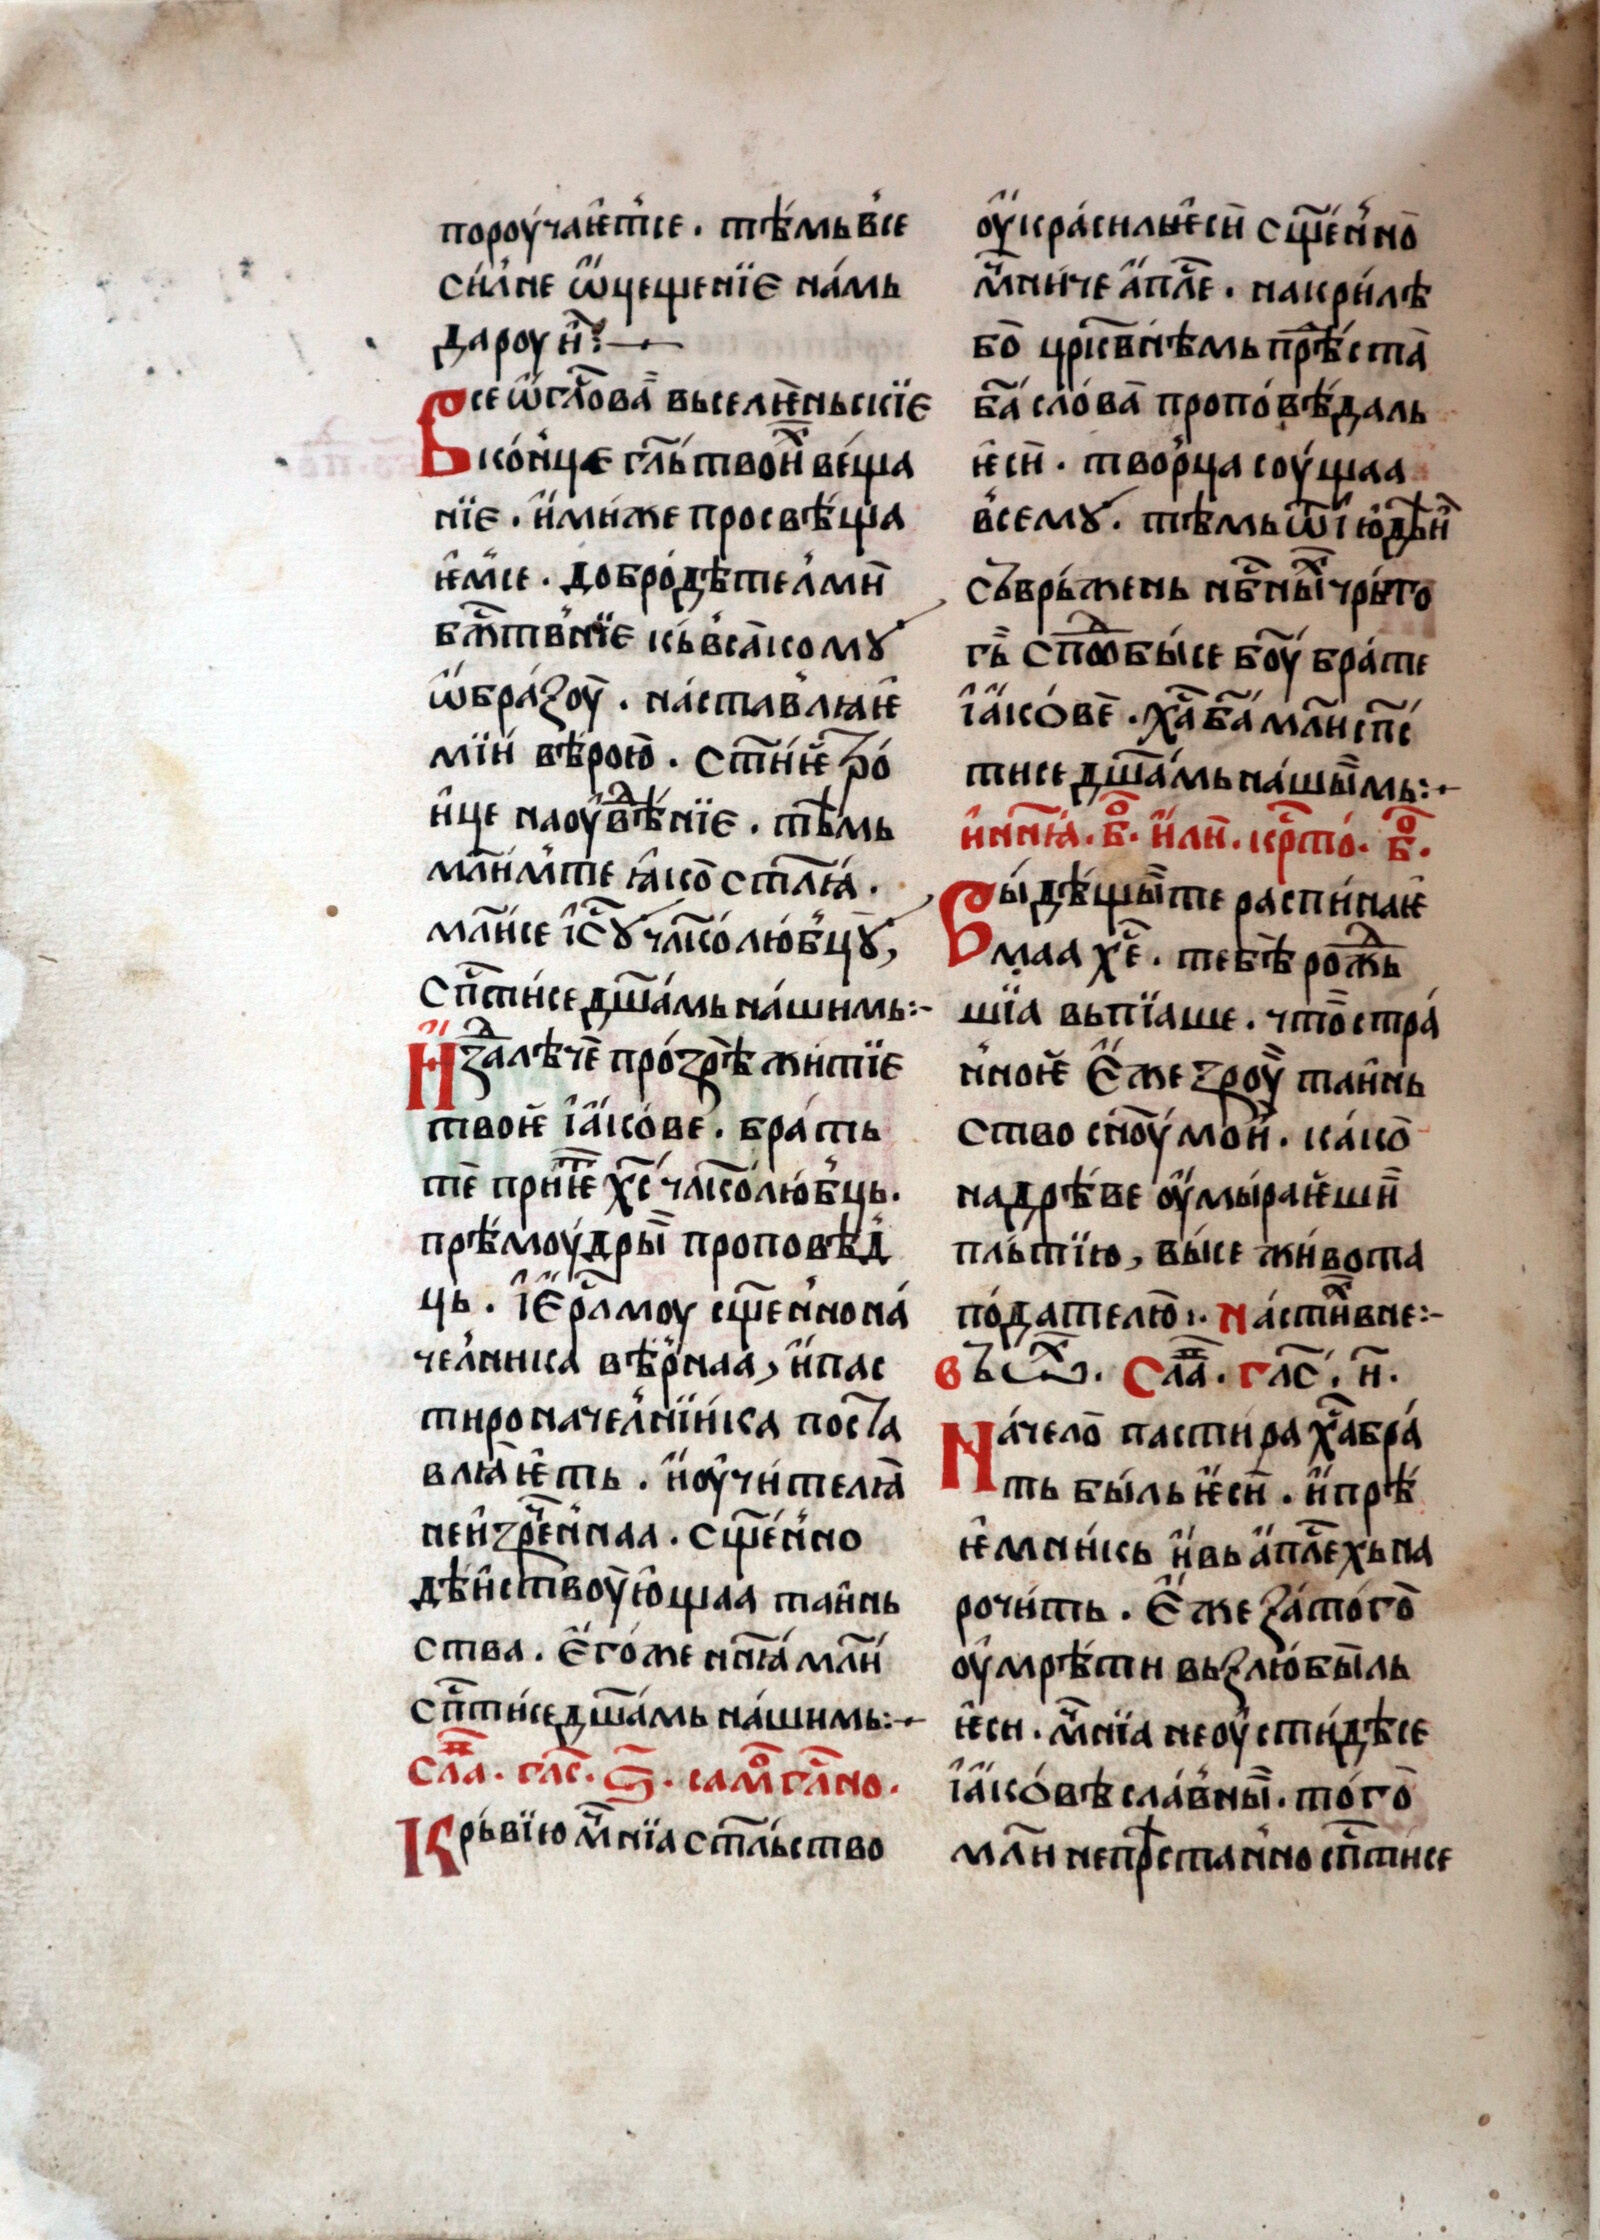 пороу́чаѥт̑се . тѣ́мь в̑се
си́лне ѡ҆цещенїе на́мь
дароуи҆ :—
Все ѡ҆гл҃ова̀ вьселѥ̀ньскїѥ
ко́нцє гл҃ь твои́хь ве́ща
нїе . и҆ми́же просвѣ́ща
ѥ҆м̑се . добро́дѣтелми̏
бж҃тв̑нїе кь́ вса̀комꙋ
ѡ҆бра́ꙁоу̀ . на́ставлꙗѥ
мїи вѣ́рою̀ . ст҃и́ѥ тро́
и҆це на оу҆вѣ́дⷣнїе . тѣ́мь
мл҃и́м̑те ꙗ҆ко̀ ст҃лꙗ .
мл҃и́се і҆с꙽ꙋ чл҃ко́лю́б̑цꙋ ,
сп҃сти́се дш҃а́мь на́шимь :-
Иꙁда̀лѣче̏ про́ꙁрѣ̀ жи́тїе
твоѥ̀ і҆а҆ко́ве̏ . бра́ть
те̏ при́ѥт х҃с чл҃ко́лю́бць .
прѣ́моу́дры̏ проповѣ́д
ць . і҆є҆рс҃лмоу сщ҃ен̑нона́
чел̑ника вѣ́р̑наа , и҆ пас
тиро на́чел̑ни́ка поста
влꙗ̀ѥ҆ть . и҆ оу҆чи́телꙗ̀
неиꙁре́чен̑наа . сщ҃е́н̑но
дѣ́и҆ствоу҆ю҆щаа таи̑нь
ства . є҆го́же нн҃ꙗ мл҃и́
сп҃сти́се дш҃а́мь на́шимь :-
сла́в . гл҃с . ѕ҃ . самогл҃сно .
Крь́вїю мч҃нїа ст҃ль́ство
оу҆кра́силь ѥ҆си̏ сщ҃е́н̑но̀
мч҃ни́че а҆пл҃е . на кри́лѣ
бо̀ црк҃в̑нѣ́мь прѣ́ста̀
бж҃а сло́ва̀ пропо́вѣ́даль
ѥ҆си̏ . твор̑ца соу́щаа
в̑семꙋ . тѣ́мь ѿ і҆ю҆де́и̏
съврь́жень нб҃ны́хь чрь́то
гь̏ спо́доби́се б҃оу̀ бра́те
і҆а҆ко́ве̏ . х҃а б҃а мл҃и сп҃с
тисе дш҃а́мь на́шы̀мь :-
и҆ нн҃ꙗ . б҃о . и҆ли̏ . кр҃сто́ . б҃о .
Ви́дѣ́щы́ те распи́наѥ
маа х҃е . тебѣ̀ рожⷣь
шїа вьпїаше . что̏ стра́
н̑ноѥ̀ є҆же ꙁроу̏ таи̑нь
ство сн҃оу̀ мои̏ . ка́ко̀
на дрѣ́ве оу҆мы́раѥши̏
пль́тїю , выісе жи́вота
по́дателю̀ :. на сти́хвне :-
въсⷯ . сла́в . гл҃с . и҃ .
На́чело̀ пасти́ра х҃а бра́
ть бы́ль ѥ҆си̏ . и҆ прѣ̀
ѥ҆мни́кь и҆ вь а҆пл҃ехь на
рочи́ть . є҆же ꙁа́ то́го̏
оу҆мрѣ́ти вьꙁлю́би̏ль
ѥ҆си . мч҃нїа не оу҆сти́дѣ́се
і҆а҆ко́вѣ сла́в̑ны̏ . то́го̀
мл҃и непрѣста́н̑но сп҃сти́се